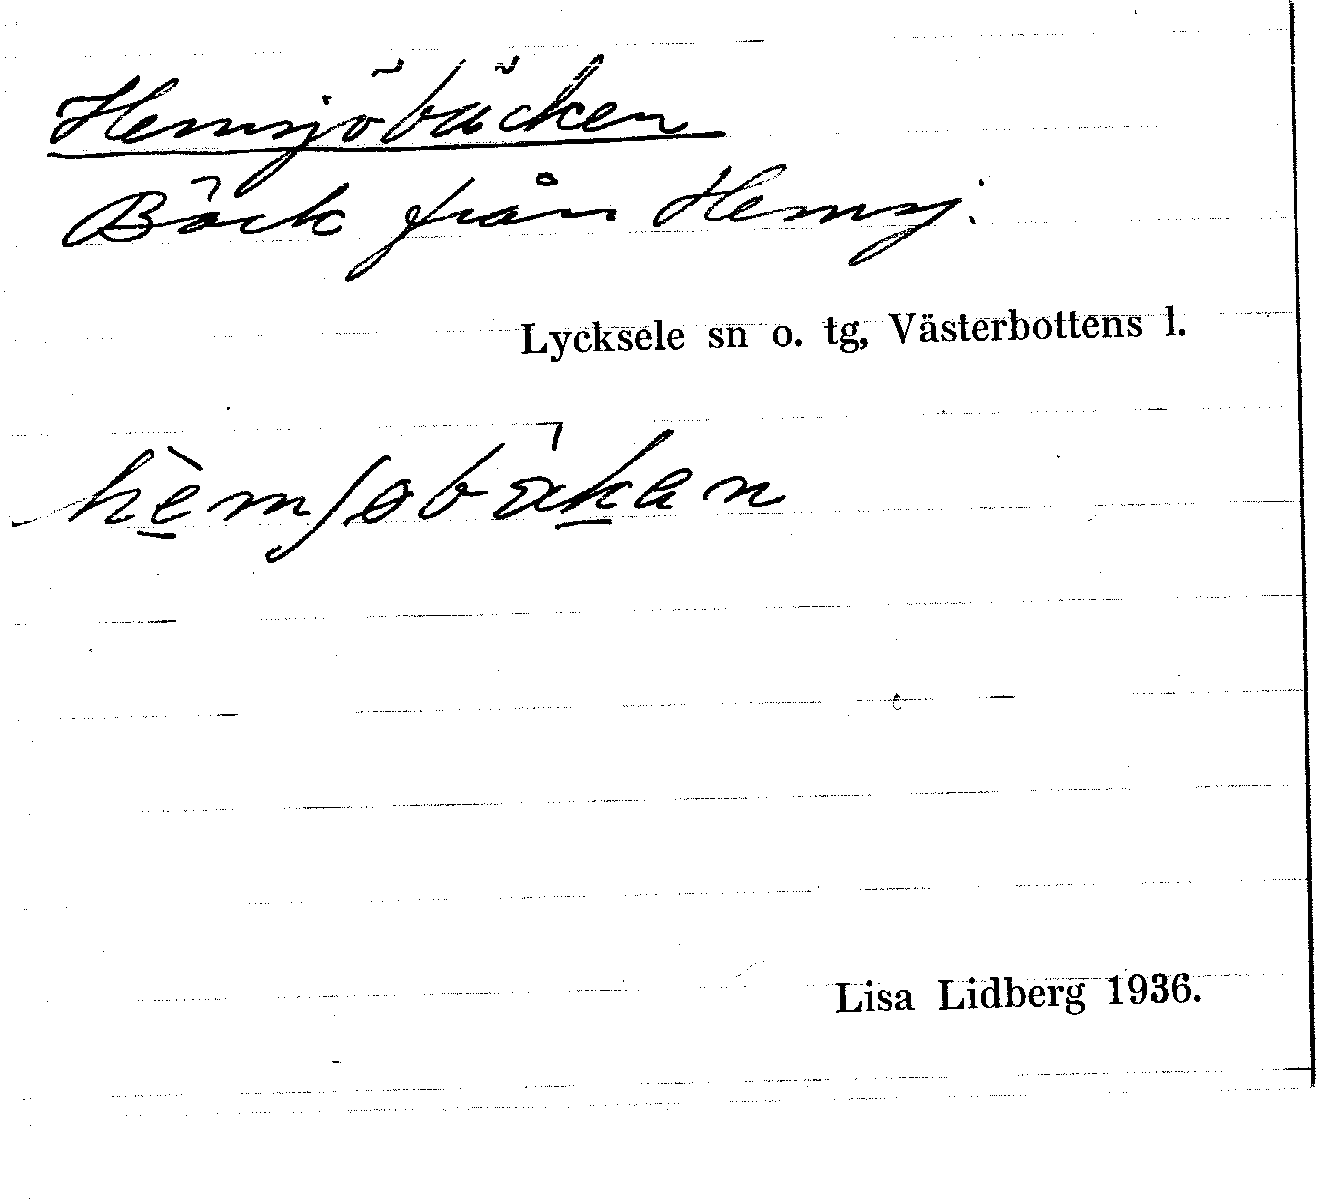 Hemsjöbäcken
Bäck från Hemsj.
Lycksele sn o. tg, Västerbottens l.
Lisa Lidberg 1936.